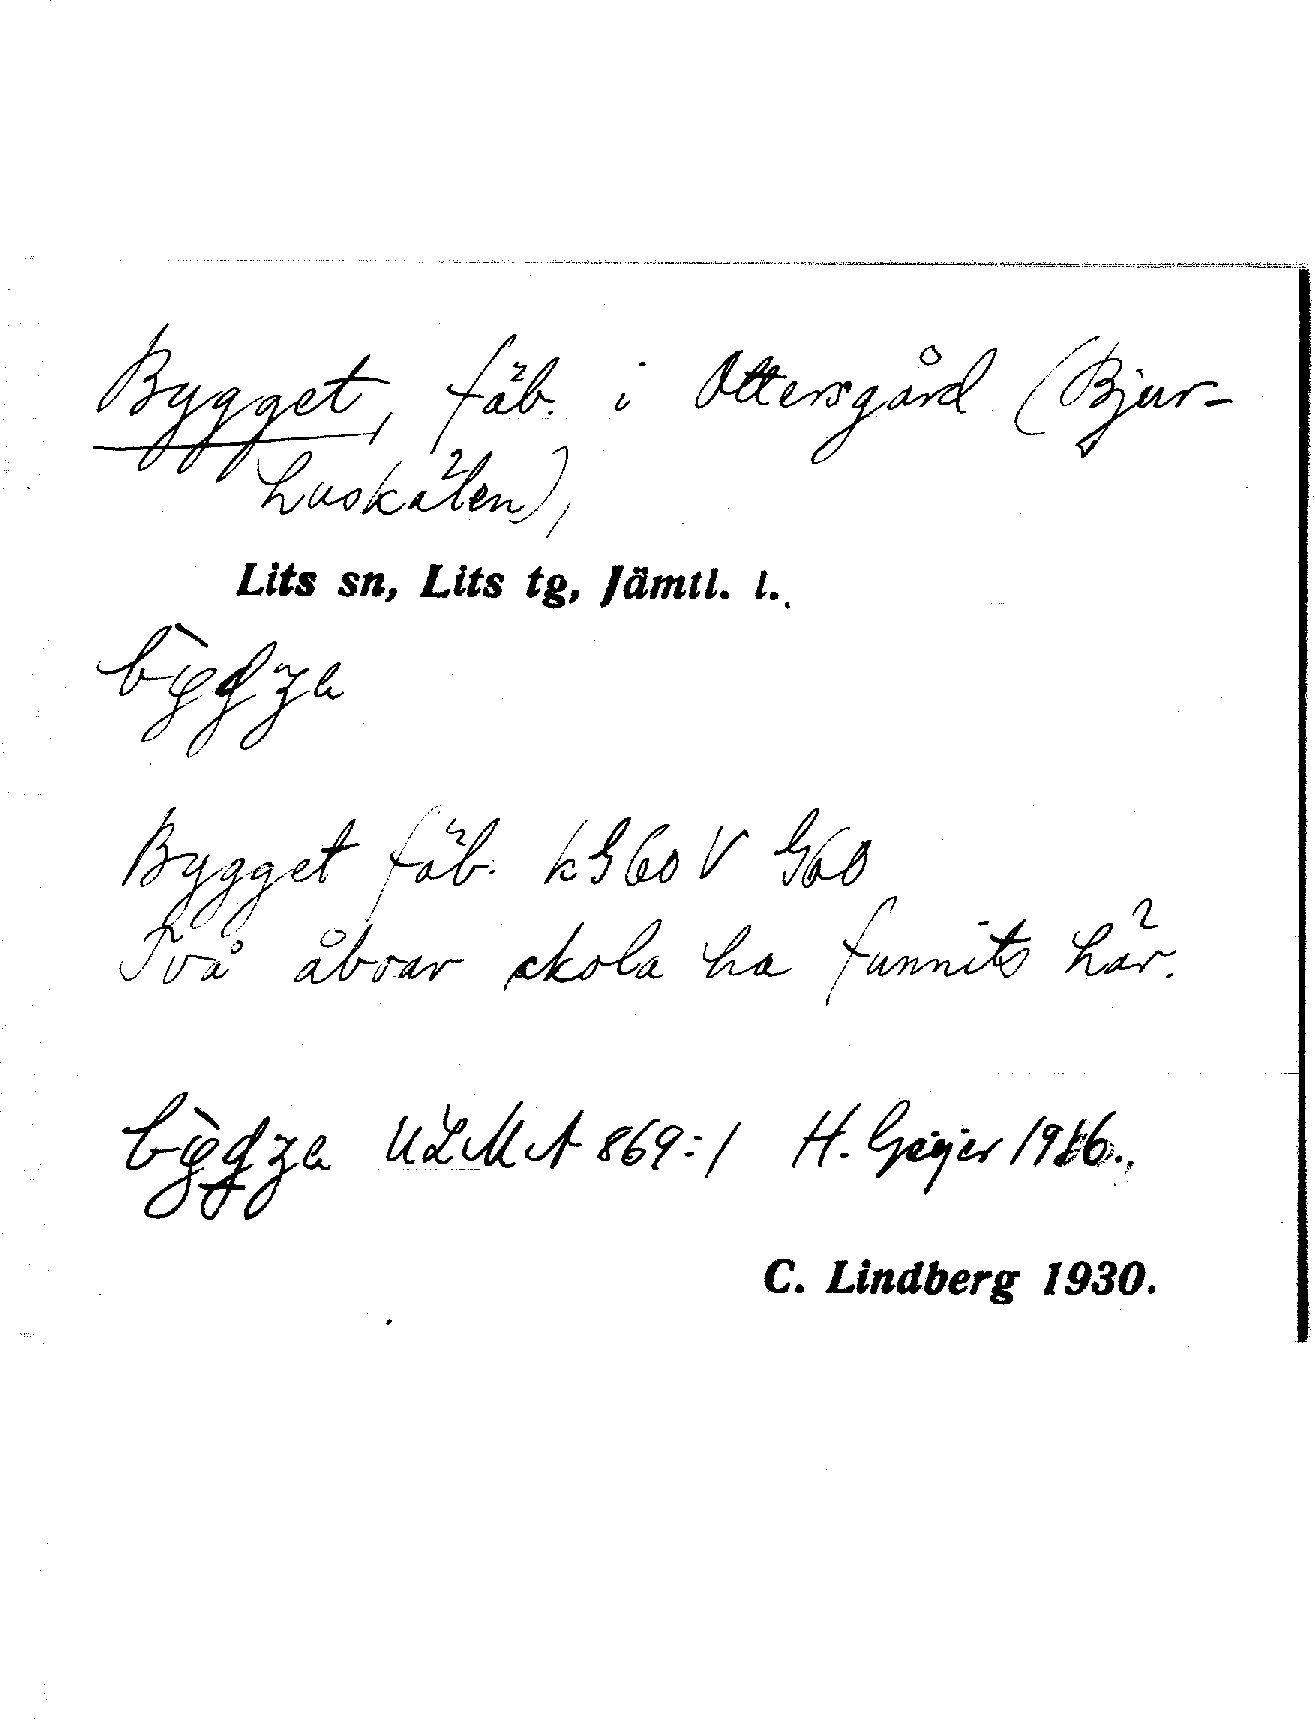 Bygget, fäb. i Ottersgård (Bjur-
huskälen),
Lits sn, Lits tg, Jämtl. l.
Bygget fäb. kG60 V G60
Två åboar skola ha funnits här.
ULMA 869:1 H. Geijer
C. Lindberg 1930.